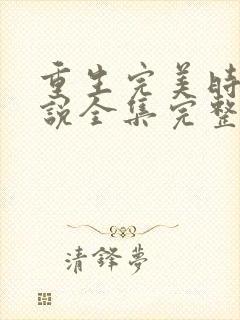 重生完美時
說全集完整
清鋒夢